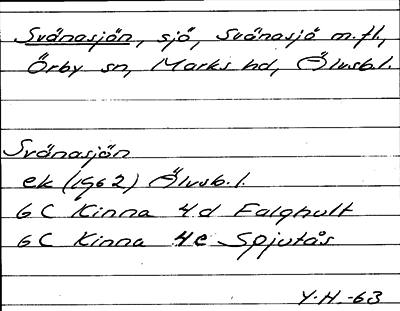 Svänasjön, sjö, Svänasjö m.fl.,
Örby sn, Marks hd, Älvsb.l.
Svänasjön
ek (1962) Älvsb.l.
6 C Kinna 4 d Falghult
6 C Kinna 4 e Spjutås
Y.H.-63